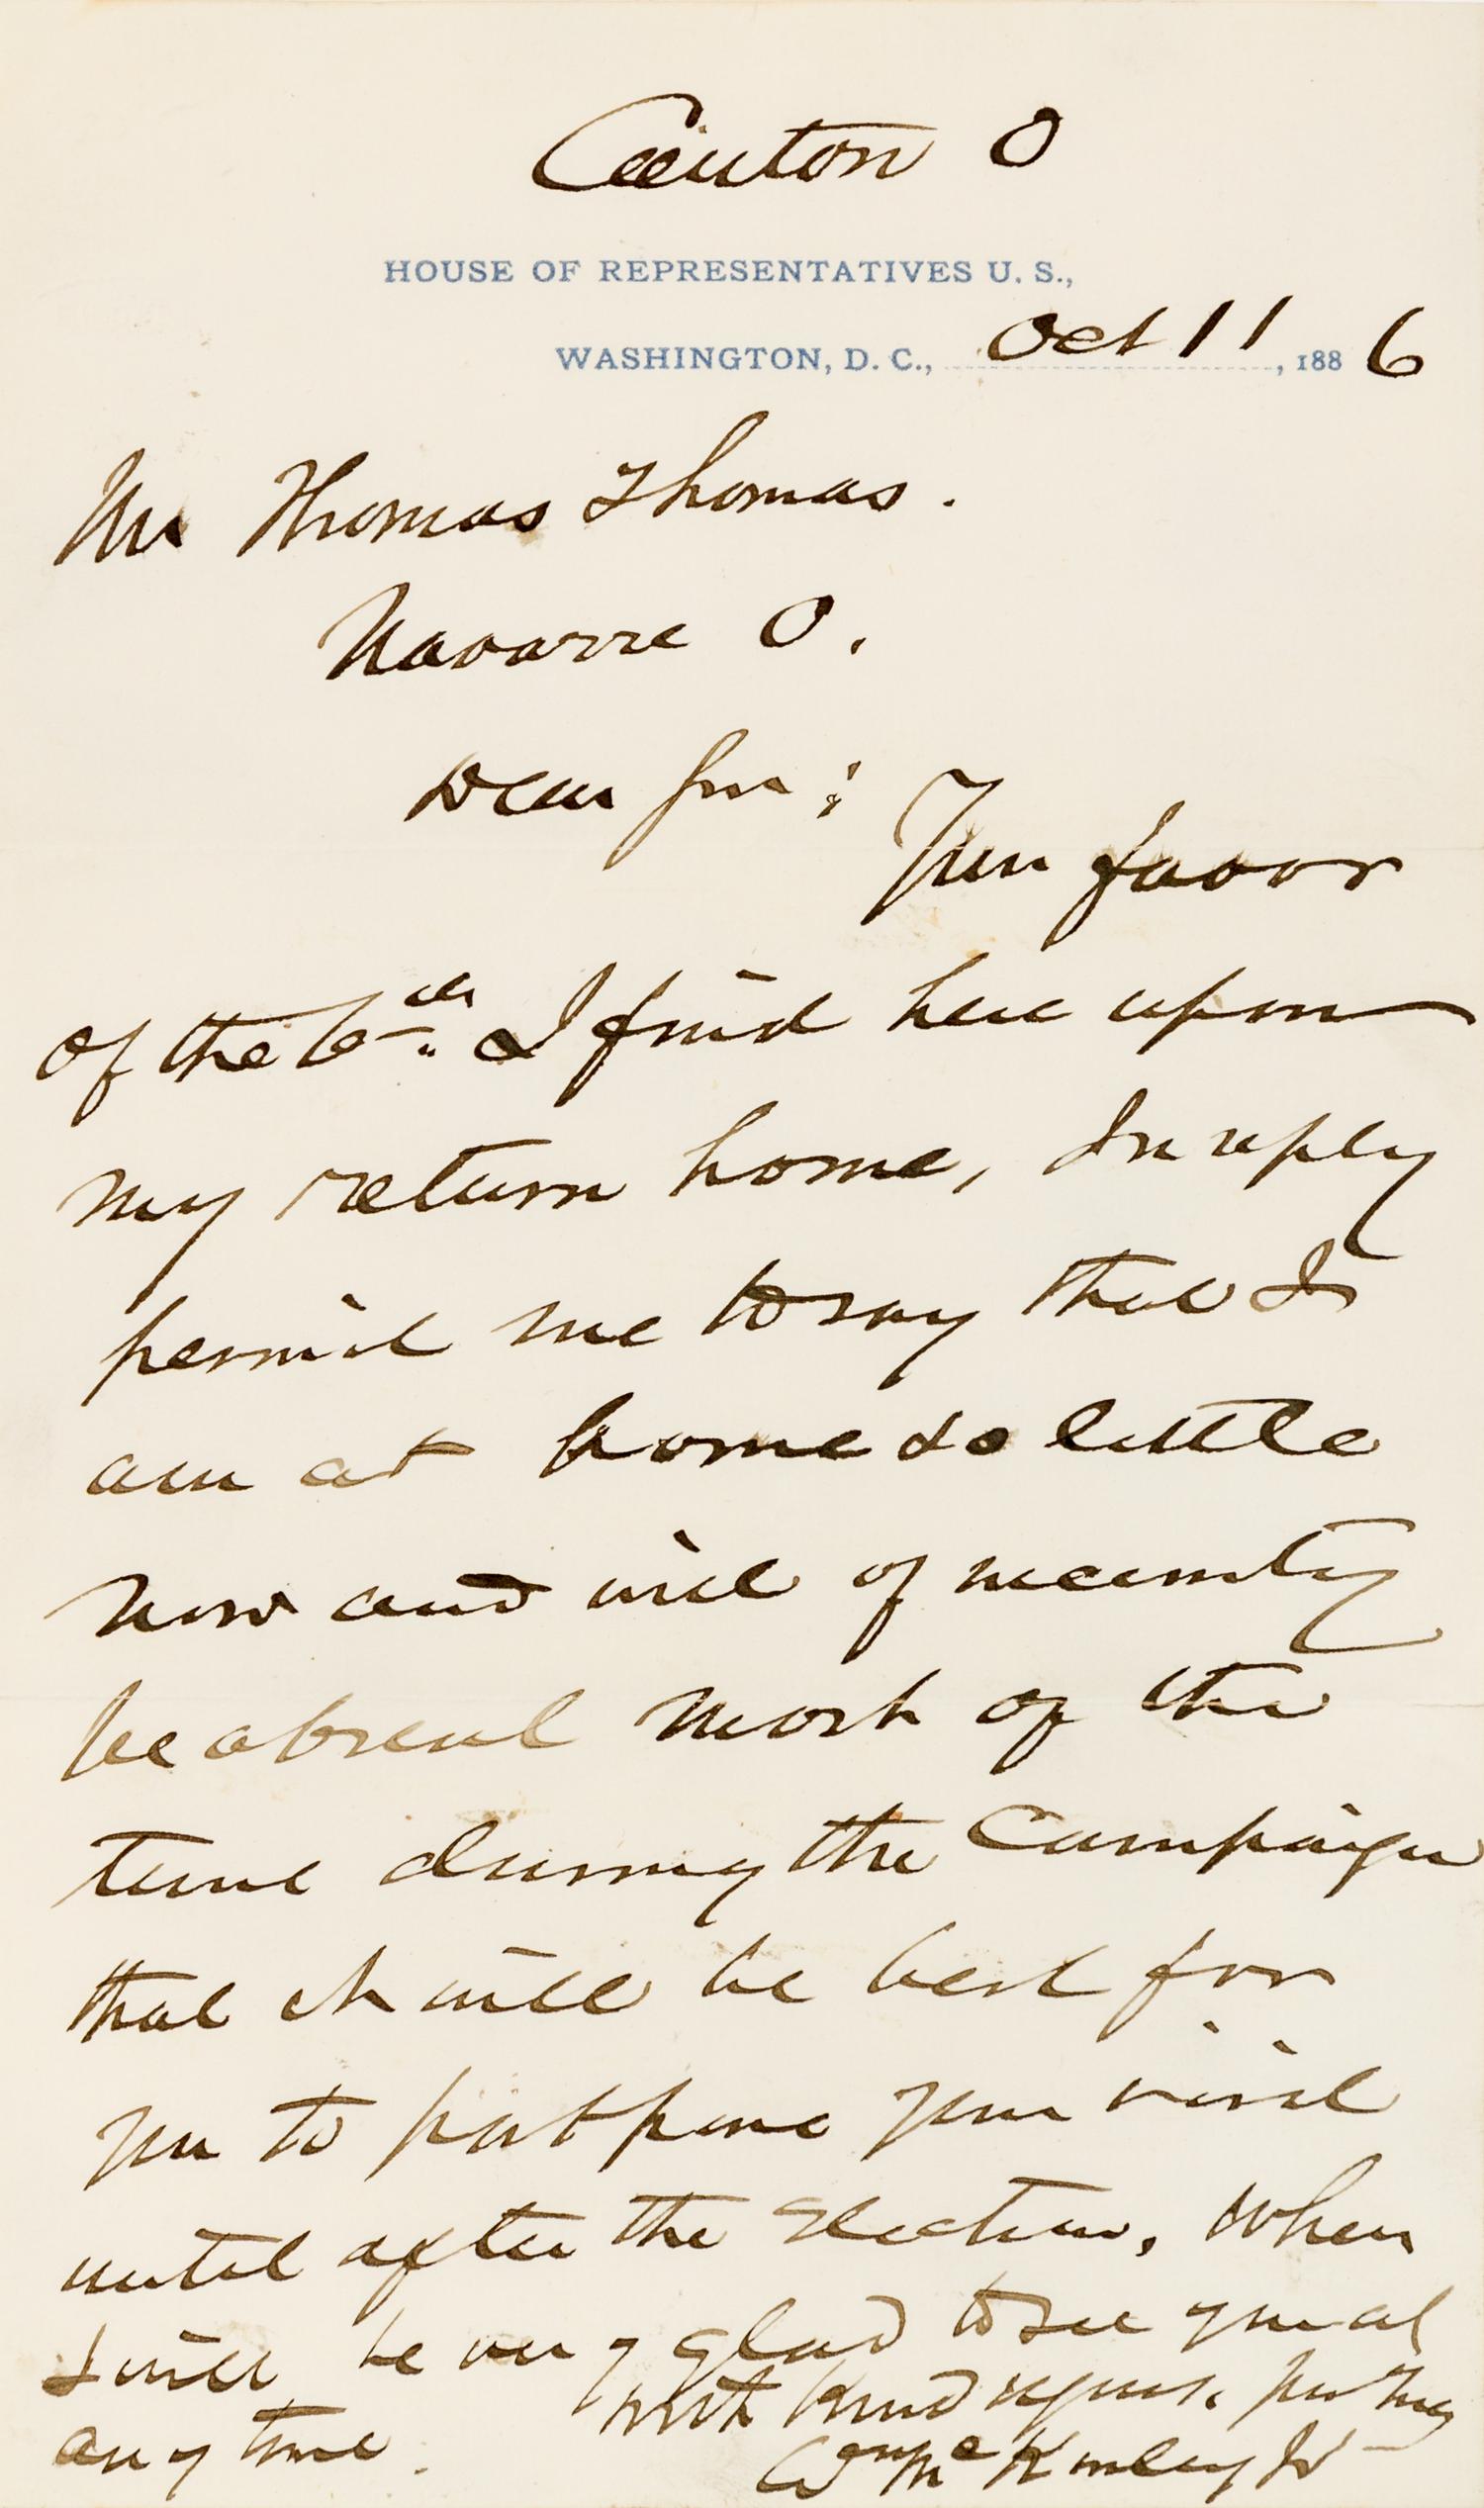 Canton O
HOUSE OF REPRESENTATIVES U. S.,
WASHINGTON, D. C., Oct 11, 1886
Mr Thomas Thomas.
Navarre O.
Dear Sir: Your favor
of the 6th. I find here upon
my return home, In reply
permit me to say that I
am at home so little
now and will of necessity
be absent most of the
time during the Campaign
that it will be best for
you to postpone your visit
until after the Election, when
I will be very glad to see you at
any time.
With kind regards, yours truly
Wm McKinley Jr